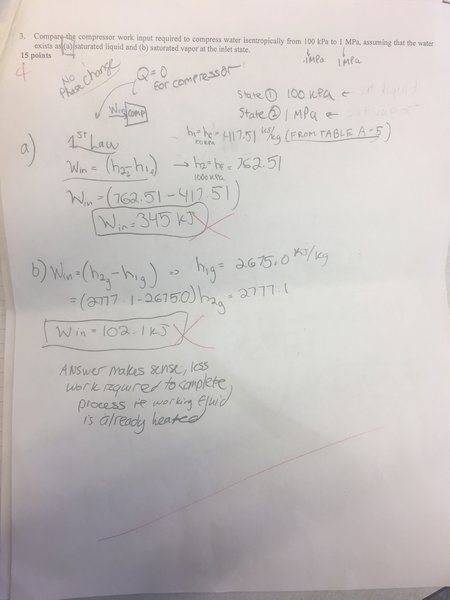 3. Compare the compressor work input required to compress water isentropically from 100 kPa to 1 MPa, assuming that the water
exists as (a) saturated liquid and (b) saturated vapor at the inlet state.
15 points
.1MPa 1MPa
4
NO phase change
Q=0 for compressor
Wcomp
State ① 100 kPa ←
State ② 1 MPa ←
a) 1ST Law
h1=hf = 417.51 kJ/kg (FROM TABLE A-5)
100kPa
Win = (h2f-h1f) → h2=hf= 762.51
1000kPa
Win = (762.51-417.51)
Win=345 kJ
b) Win=(h2g-h1g) ⇒ h1g = 2675.0 kJ/kg
=(2777.1-2675.0) h2g = 2777.1
Win=102.1kJ
ANSWER makes sense, less
work required to complete
process if working fluid
is already heated